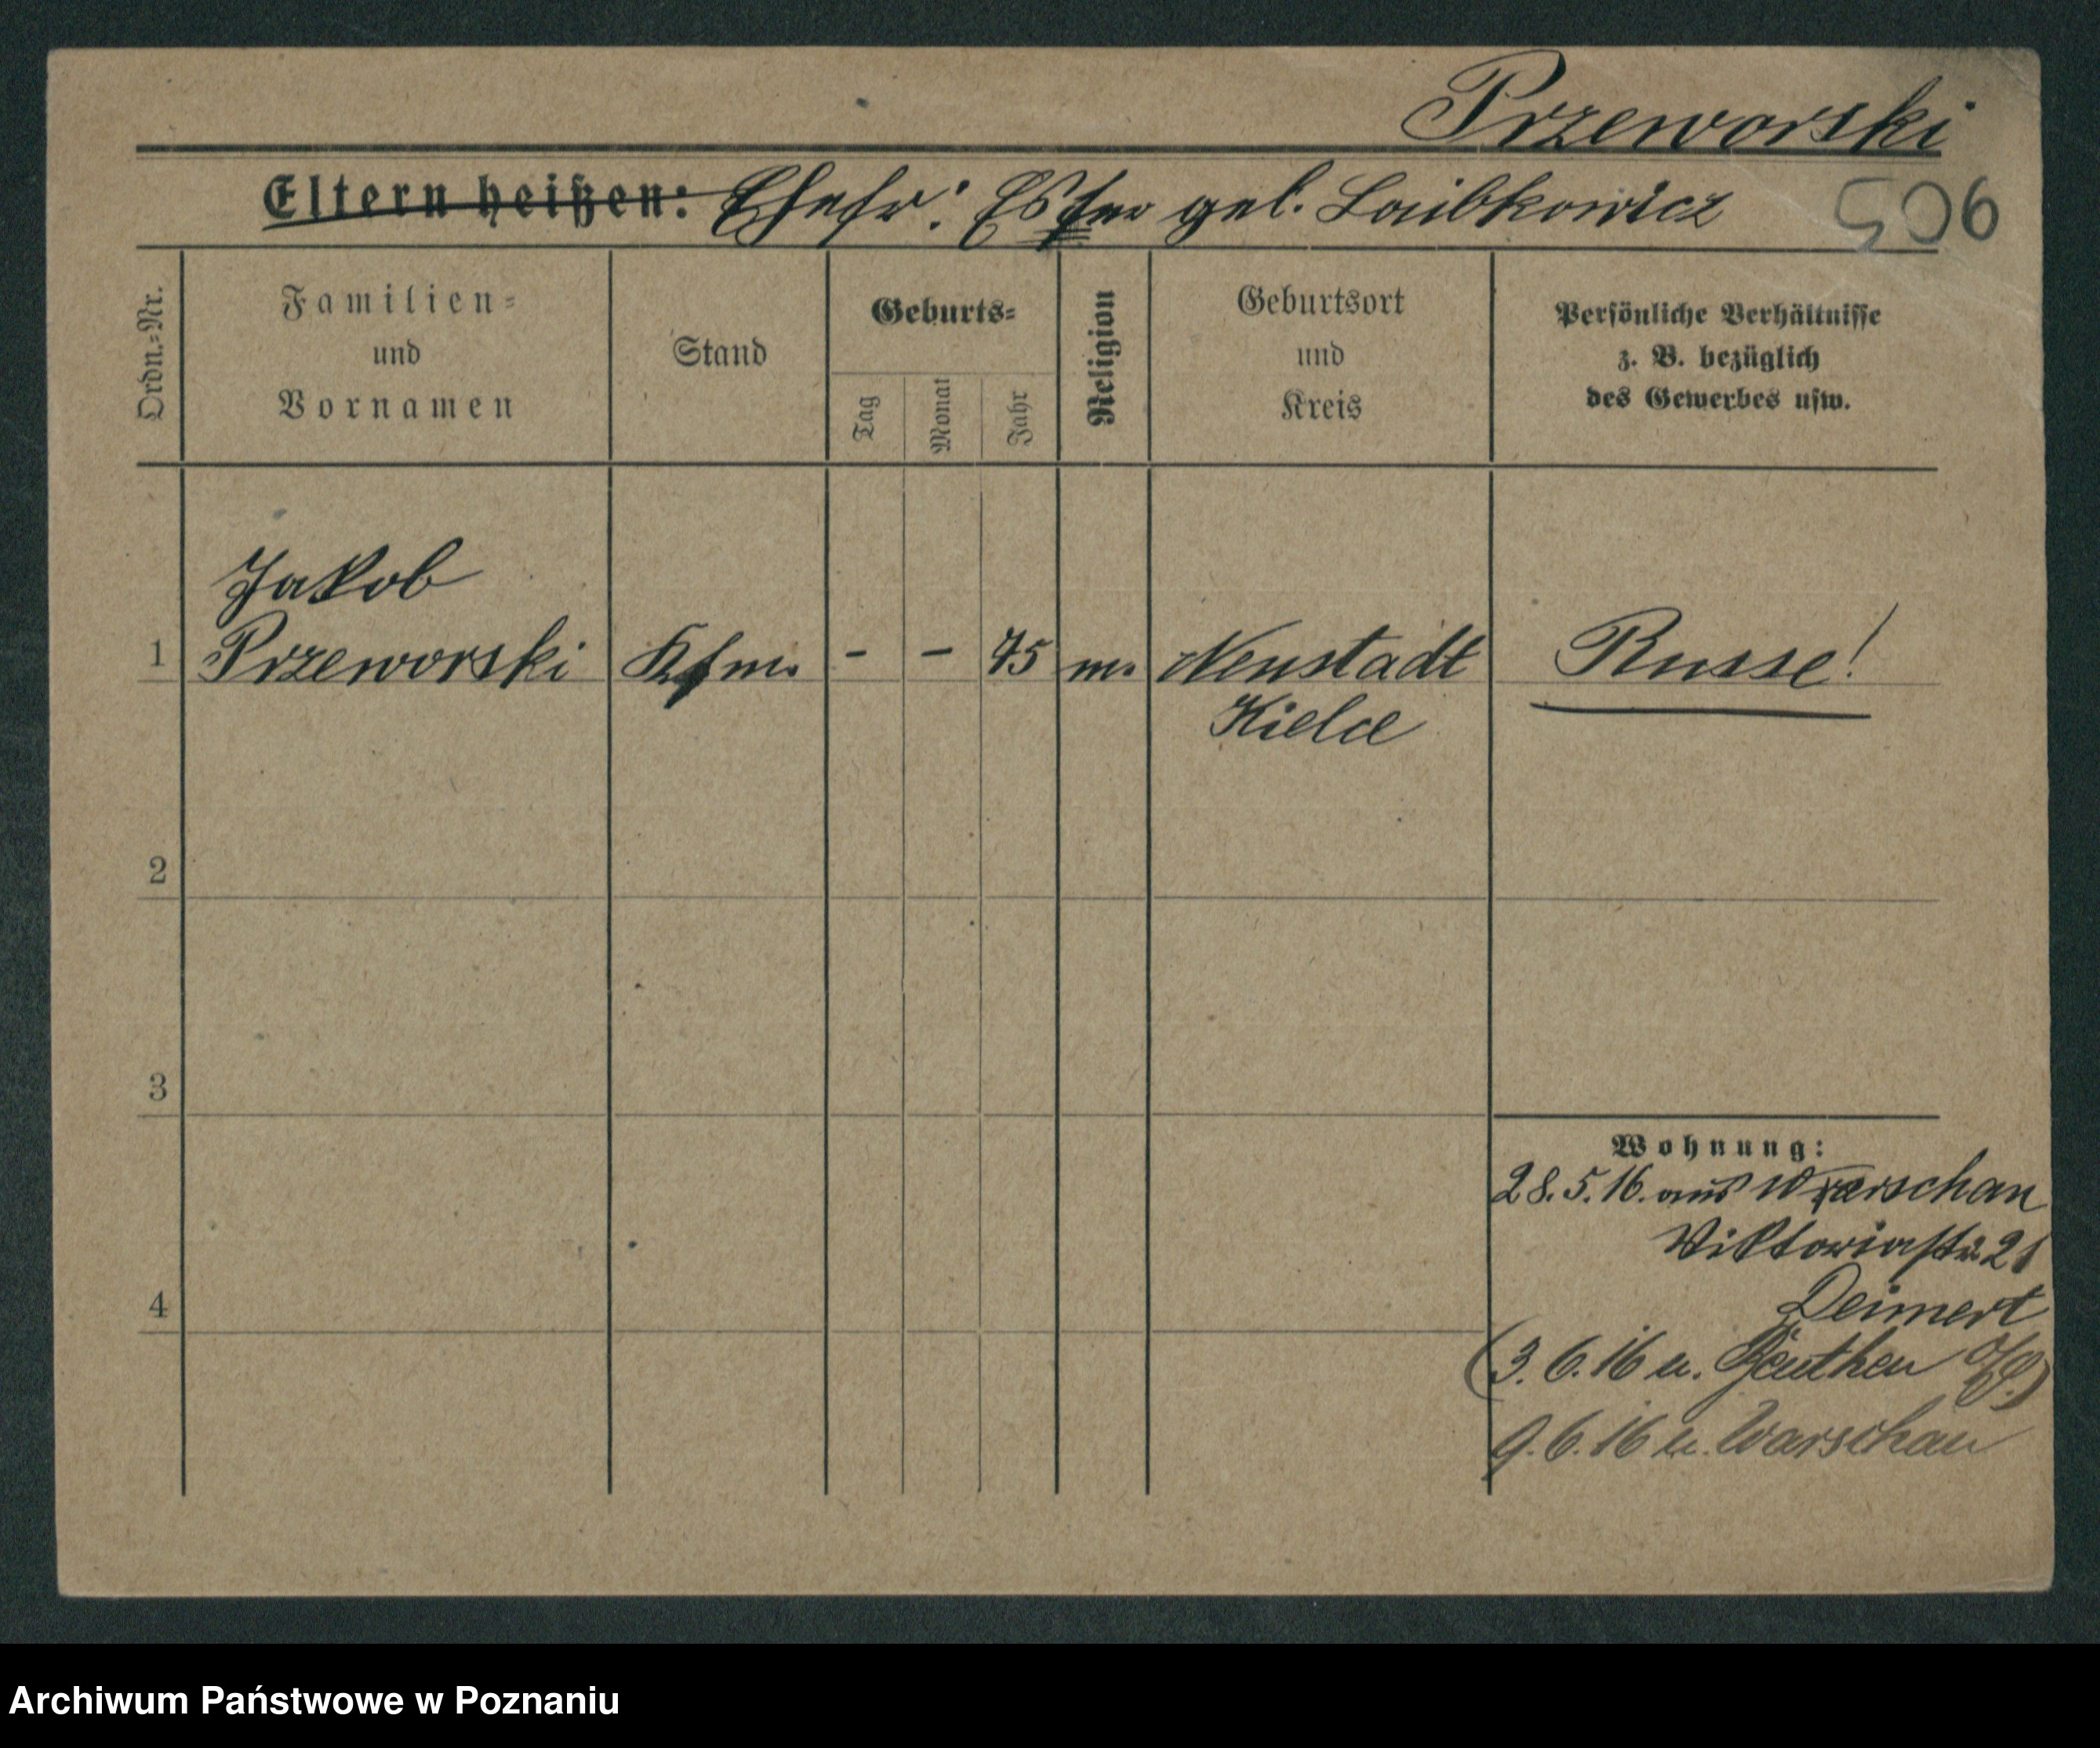 Przeworski
Eltern heißen: Ehefr: Ester geb. Laibkowicz
506
Ordn.-Nr.
Familien-
und
Vornamen
Stand
Geburts-
Tag
Monat
Jahr
Religion
Geburtsort
und
Kreis
Persönliche Verhältnisse
z. B. bezüglich
des Gewerbes usw.
Jakob
1 Przeworski Kfm. - - 75 m. Neustadt Russe!
Kielce
2
3
4
Wohnung:
28.5.16. aus Warschau
Viktoriastr. 21
Deimert
(3.6.16 u. Beuthen O/S.)
9.6.16 u. Warschau
Archiwum Państwowe w Poznaniu